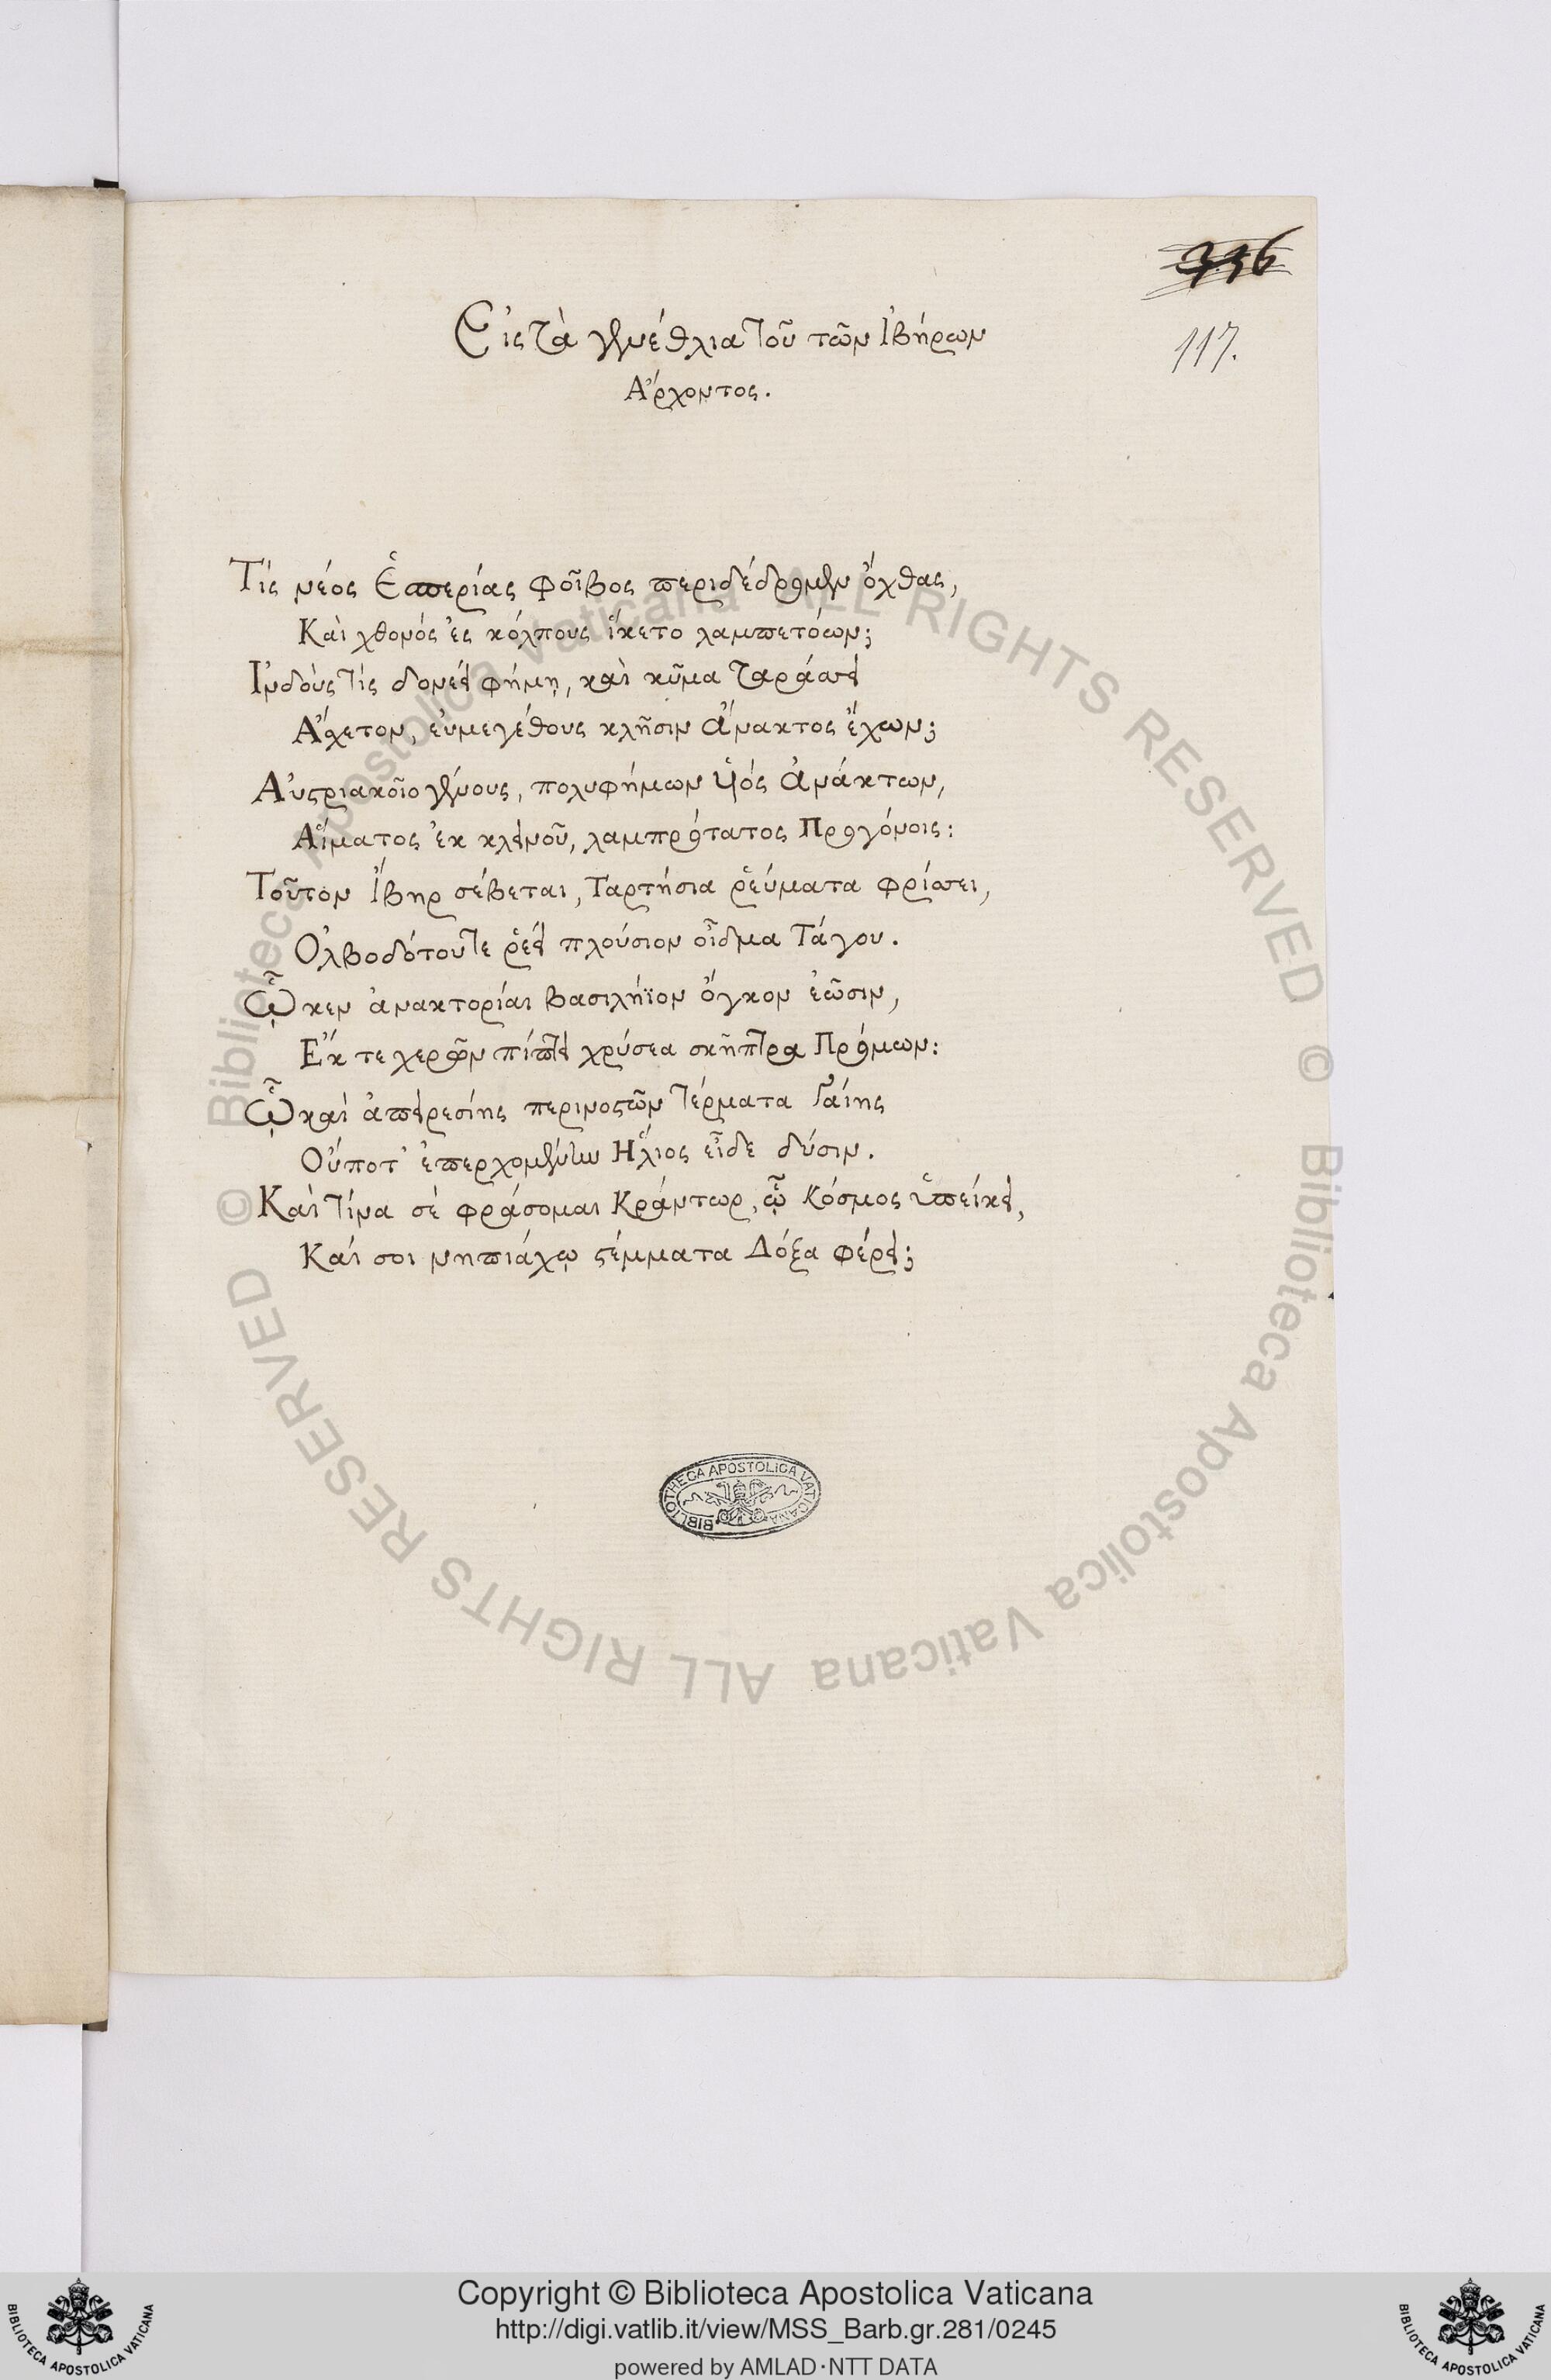 336
117.
Εἰς τὰ γενέθλια τοῦ τῶν Ἰβήρων
Ἄρχοντος.
Τίς νέος Ἑσπερίας Φοῖβος περιδέδρομεν ὄχθας,
Καὶ χθονός ἐς κόλπους ἵκετο λαμπετόων;
Ἰνδοὺς τίς δονέει φήμη, καὶ κῦμα ταράσσει
Ἄσχετον, εὐμεγέθους κλῆσιν ἄνακτος ἔχων;
Αὐστριακοῖο γένους, πολυφήμων υἱός ἀνάκτων,
Αἵματος ἐκ κλεινοῦ, λαμπρότατος Προγόνοις:
Τοῦτον Ἴβηρ σέβεται, Ταρτήσια ῥεύματα φρίσσει,
Ὀλβοδότου τε ῥέει πλούσιον οἶδμα Τάγου.
ᾯ κεν ἀνακτορίαι βασιλήϊον ὄγκον ἐῶσιν,
Ἔκ τε χερῶν πίπτει χρύσεα σκῆπτρα Πρόμων:
ᾯ καὶ ἀπειρεσίης περινοστῶν τέρματα Γαίης
Οὔποτ' ἐπερχομένην Ἥλιος εἶδε δύσιν.
Καὶ τίνα σὲ φράσομαι Κράντωρ, ᾧ Κόσμος ὑπείκει,
Καί σοι νηπιάχῳ στέμματα Δόξα φέρει;
BIBLIOTHECA APOSTOLICA VATICANA
© Biblioteca Apostolica Vaticana ALL RIGHTS RESERVED
© Biblioteca Apostolica Vaticana ALL RIGHTS RESERVED
Copyright © Biblioteca Apostolica Vaticana
http://digi.vatlib.it/view/MSS_Barb.gr.281/0245
powered by AMLAD·NTT DATA
BIBLIOTECA APOSTOLICA VATICANA
BIBLIOTECA APOSTOLICA VATICANA